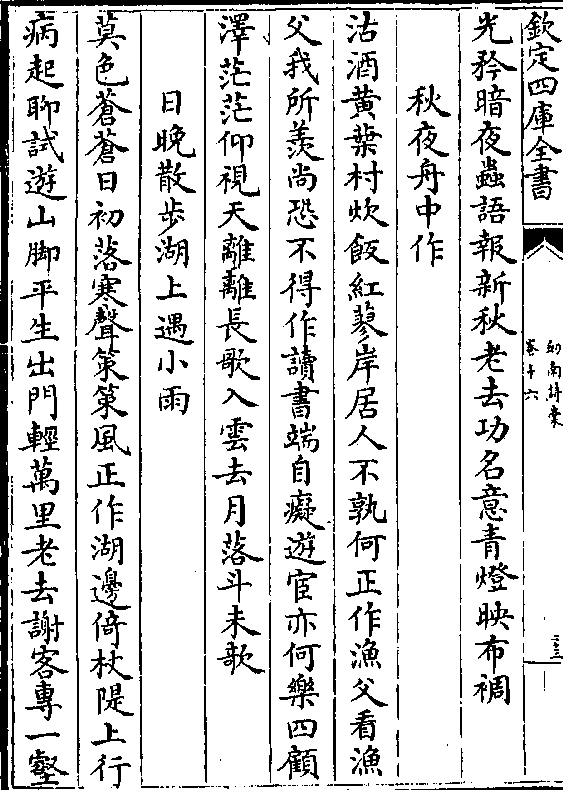 欽定四庫全書
劍南詩稾
卷十六
光矜暗夜蟲語報新秋老去功名意青燈映布裯
秋夜舟中作
沽酒黄葉村炊飯紅蓼岸居人不孰何正作漁父看漁
父我所羨尚恐不得作讀書端自癡遊宦亦何樂四顧
澤茫茫仰視天離離長歌入雲去月落斗未欹
日晚散步湖上遇小雨
莫色蒼蒼日初落寒聲策策風正作湖邊倚杖隄上行
病起聊試遊山脚平生出門輕萬里老去謝客專一壑